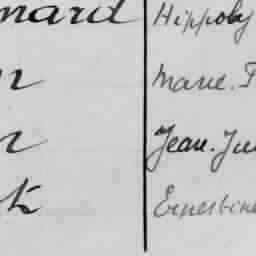 nard Hippoly
n Marie. T
n Jean. Ju
k Ernestine